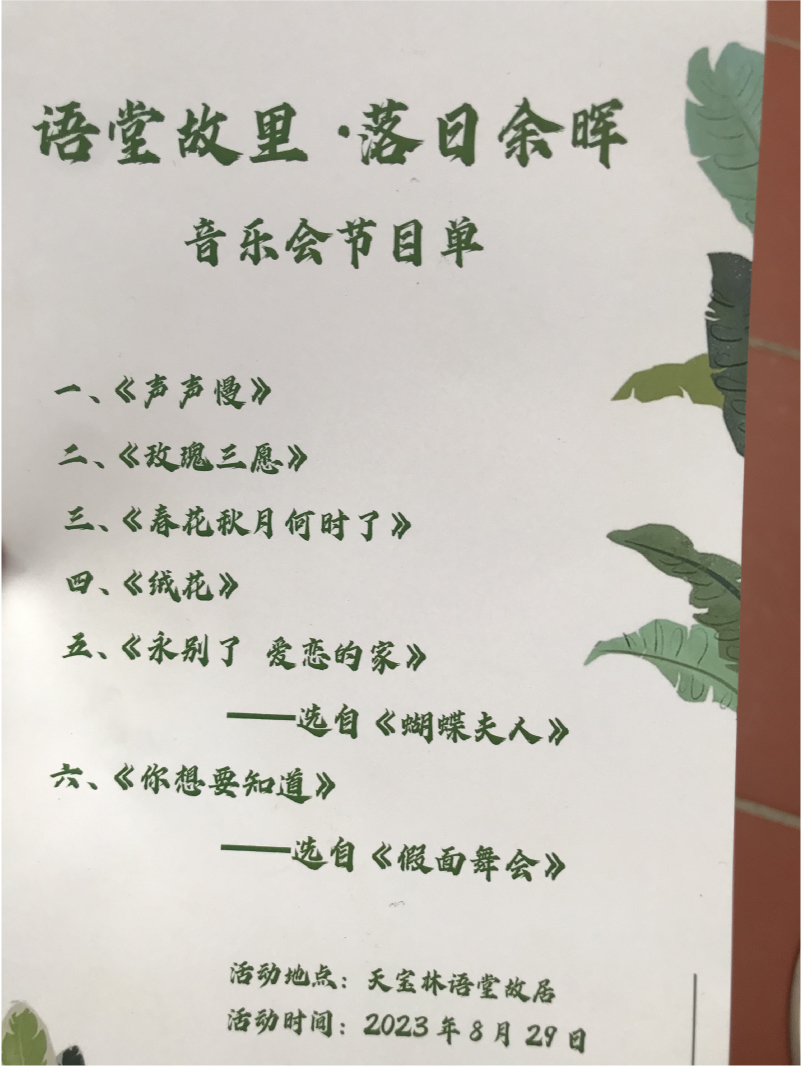 语堂故里·落日余晖
音乐会节目单
一、《声声慢》
二、《玫瑰三愿》
三、《春花秋月何时了》
四、《绒花》
五、《永别了 爱恋的家》
——选自《蝴蝶夫人》
六、《你想要知道》
——选自《假面舞会》
活动地点：天宝林语堂故居
活动时间：2023年8月29日